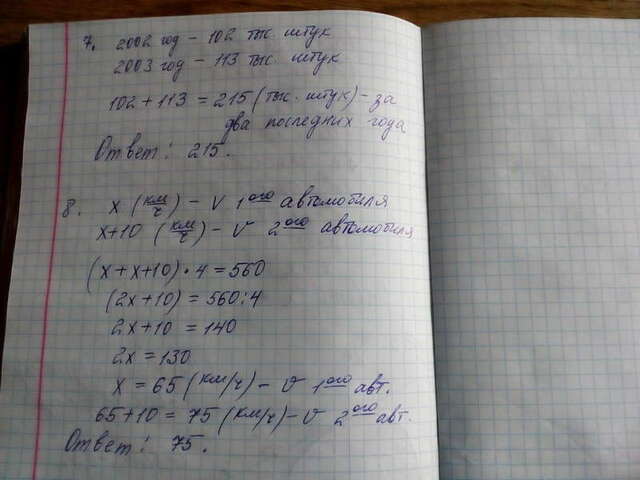 7. 2002 год - 102 тыс. штук
2003 год - 113 тыс. штук
102 + 113 = 215 (тыс. штук) - за
два последних года
Ответ: 215.
8. x (км/ч) - V 1ого автомобиля
x+10 (км/ч) - V 2ого автомобиля
(x + x+10) • 4 = 560
(2x + 10) = 560:4
2x + 10 = 140
2x = 130
x = 65 (км/ч) - V 1ого авт.
65 + 10 = 75 (км/ч) - V 2ого авт.
Ответ: 75.